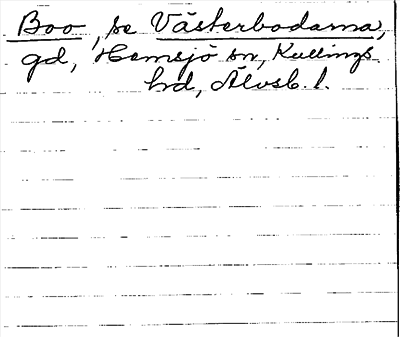 Boo, se Västerbodarna,
gd, Hemsjö sn, Kullings
hd, Älvsb. l.